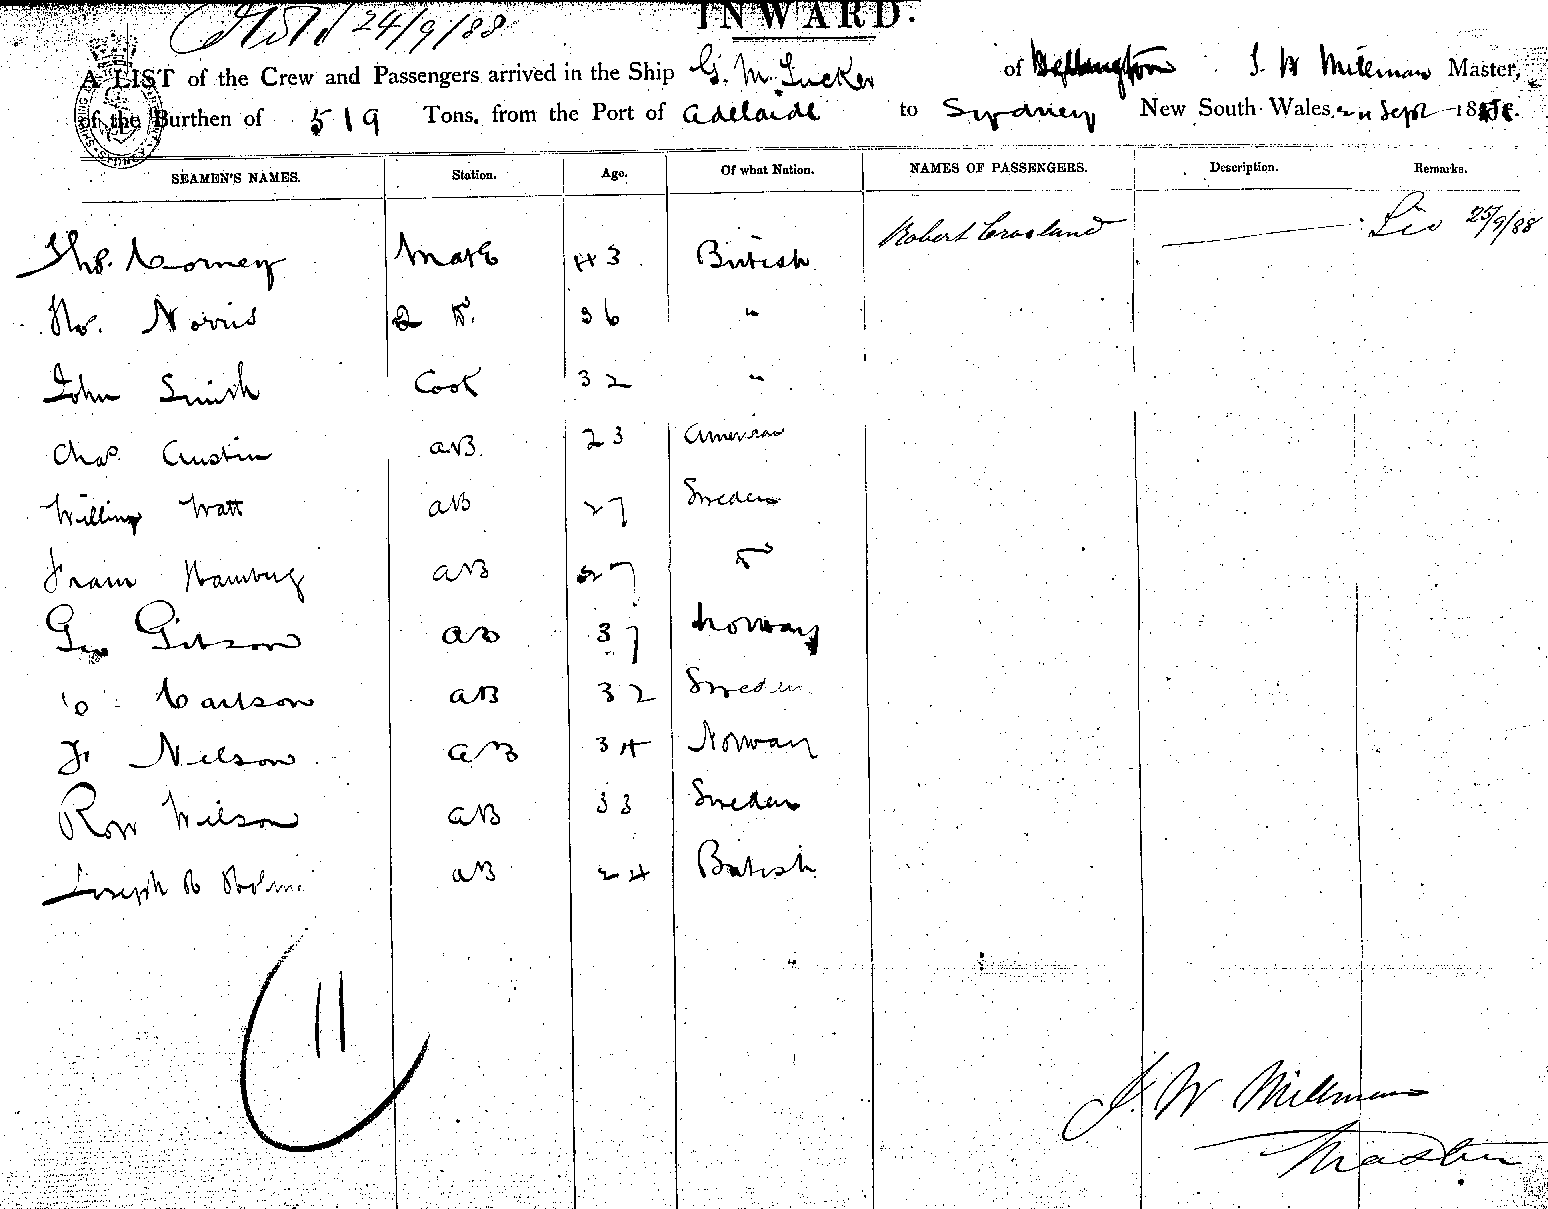 24/9/88
INWARD.
A LIST of the Crew and Passengers arrived in the Ship G. M. Tucker of Wellington J. W Millman Master,
of the Burthen of 519 Tons, from the Port of Adelaide to Sydney New South Wales, 24 Sept 1888.
SEAMEN'S NAMES. Station. Age. Of what Nation. NAMES OF PASSENGERS. Description. Remarks.
Robert Crosland 25/9/88
Thos. Corney Mate 43 British
Norris 2 Do. 36 "
John Smith Cook 32 "
Chas Austin AB. 23 American
Watt AB 27 Sweden
Hamburg AB 27 Do
Geo Gibson AB 37 Norway
C Carlson AB 32 Sweden
F Nelson AB 34 Norway
Wilson AB 33 Sweden
Joseph AB 24 British
11
J. W Millman
Master